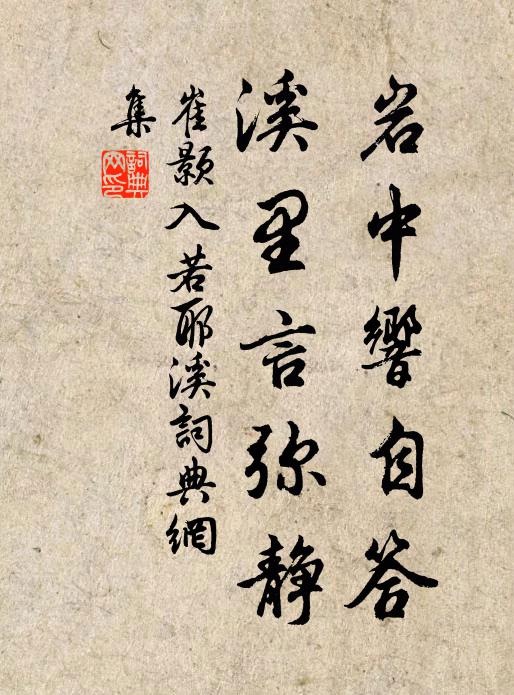 岩中響自答
溪里言弥静
崔顥入若耶溪詞典網
集
詞典
网印